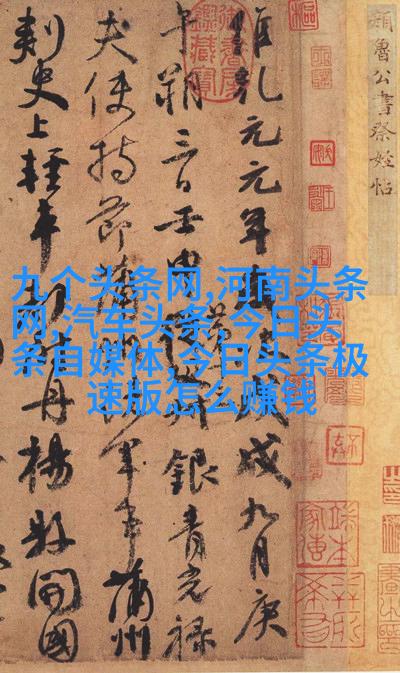 九个头条网,河南头条
网,汽车头条,今日头
条自媒体,今日头条极
速版怎么赚钱
顏魯公書祭姪帖
維乾元元年歲次戊戌九月庚
午朔三日壬申 銀青光祿
夫使持節蒲州諸軍事蒲州
刺史上輕車都尉丹楊縣開國